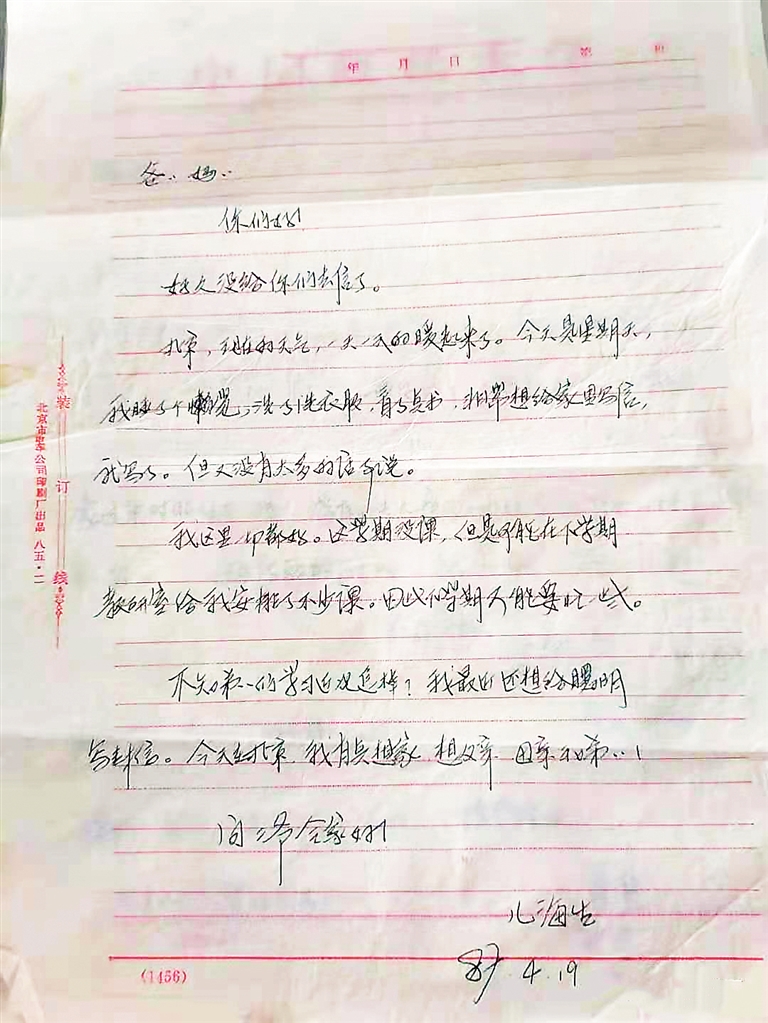 年 月 日 第 页
爸、妈：
你们好！
好久没给你们去信了。
北京，现在的天气，一天一天的暖起来了。今天是星期天，
我睡了个懒觉，洗了洗衣服，看了点书，非常想给家里写信，
我写了。但又没有太多的话可说。
我这里一切都好。这学期没课，但是可能在下学期
教研室给我安排了不少课。因此下学期可能要忙一些。
不知弟弟们学习近况怎样？我最近还想给腊明
写封信。今天在北京，我有点想家，想父亲、母亲和弟弟！
问三爷全家好！
儿海生
87.4.19
装订线
北京市电车公司印刷厂出品 八五·二
(1456)